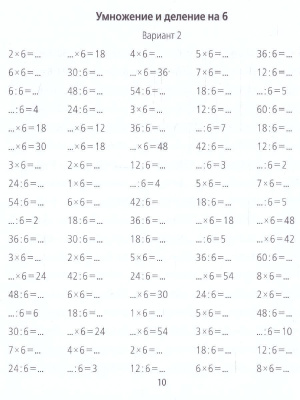 Умножение и деление на 6
Вариант 2
2×6=... ...×6=18 4×6=... 5×6=... 36:6=...
6×6=... 30:6=... ...×6=36 7×6=... 12:6=...
6:6=... 48:6=... 54:6=... 18:6=... ...:6=5
...:6=4 24:6=... 3×6=... 12:6=... 60:6=...
...×6=18 ...×6=12 36:6=... ...:6=7 18:6=...
...×6=30 ...×6=18 ...×6=48 42:6=... 12:6=...
3×6=... 2×6=... 12:6=... ...:6=3 ...:6=2
24:6=... 1×6=... ...:6=4 5×6=... 7×6=...
54:6=... 6×6=... 42:6= 18:6=... ...:6=5
...:6=2 18:6=... 36:6=... ...×6=18 ...×6=48
36:6=... 30:6=... 18:6=... ...:6=5 ...×6=42
3×6=... 2×6=... 5×6=... 36:6=... 60:6=...
...×6=24 42:6=... 24:6=... ...×6=54 8×6=...
48:6=... 6×6=... ...×6=30 24:6=... 2×6=...
...:6=6 18:6=... 1×6=... 5×6=... 48:6=...
30:6=... ...×6=24 ...×6=54 3×6=... ...:6=10
7×6=... 4×6=... 2×6=... 18:6=... 12:6=...
24:6=... ...:6=3 12:6=... 6×6=... 8×6=...
10